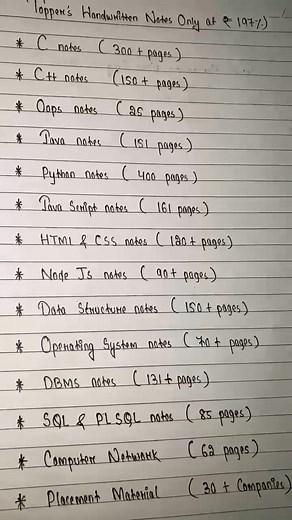 Topper's Handwritten Notes Only at ₹ 197/)
* C notes ( 300 + pages)
* C++ notes (150 + pages)
* Oops notes ( 25 pages)
* Java notes ( 151 pages)
* Python notes ( 400 pages)
* Java Script notes ( 161 pages)
* HTML & CSS notes ( 120 + pages)
* Node Js notes ( 90 + pages)
* Data Structure notes ( 150 + pages)
* Operating System notes ( 70 + pages)
* DBMS notes ( 131 + pages)
* SQL & PL SQL notes ( 85 pages)
* Computer Network ( 62 pages)
* Placement Material ( 30 + Companies)